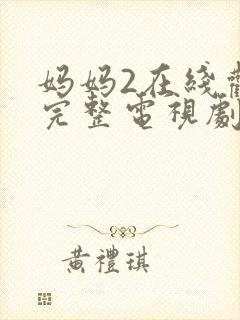 妈妈2在綫觀
完整電視劇
黃禮琪